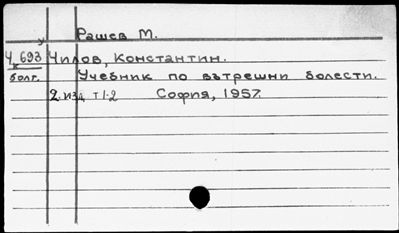 Рашев М.
Ч 693 Чилов, Константин.
болг. Учебник по вътрешни болести.
2. изд т 1-2 София, 1957.